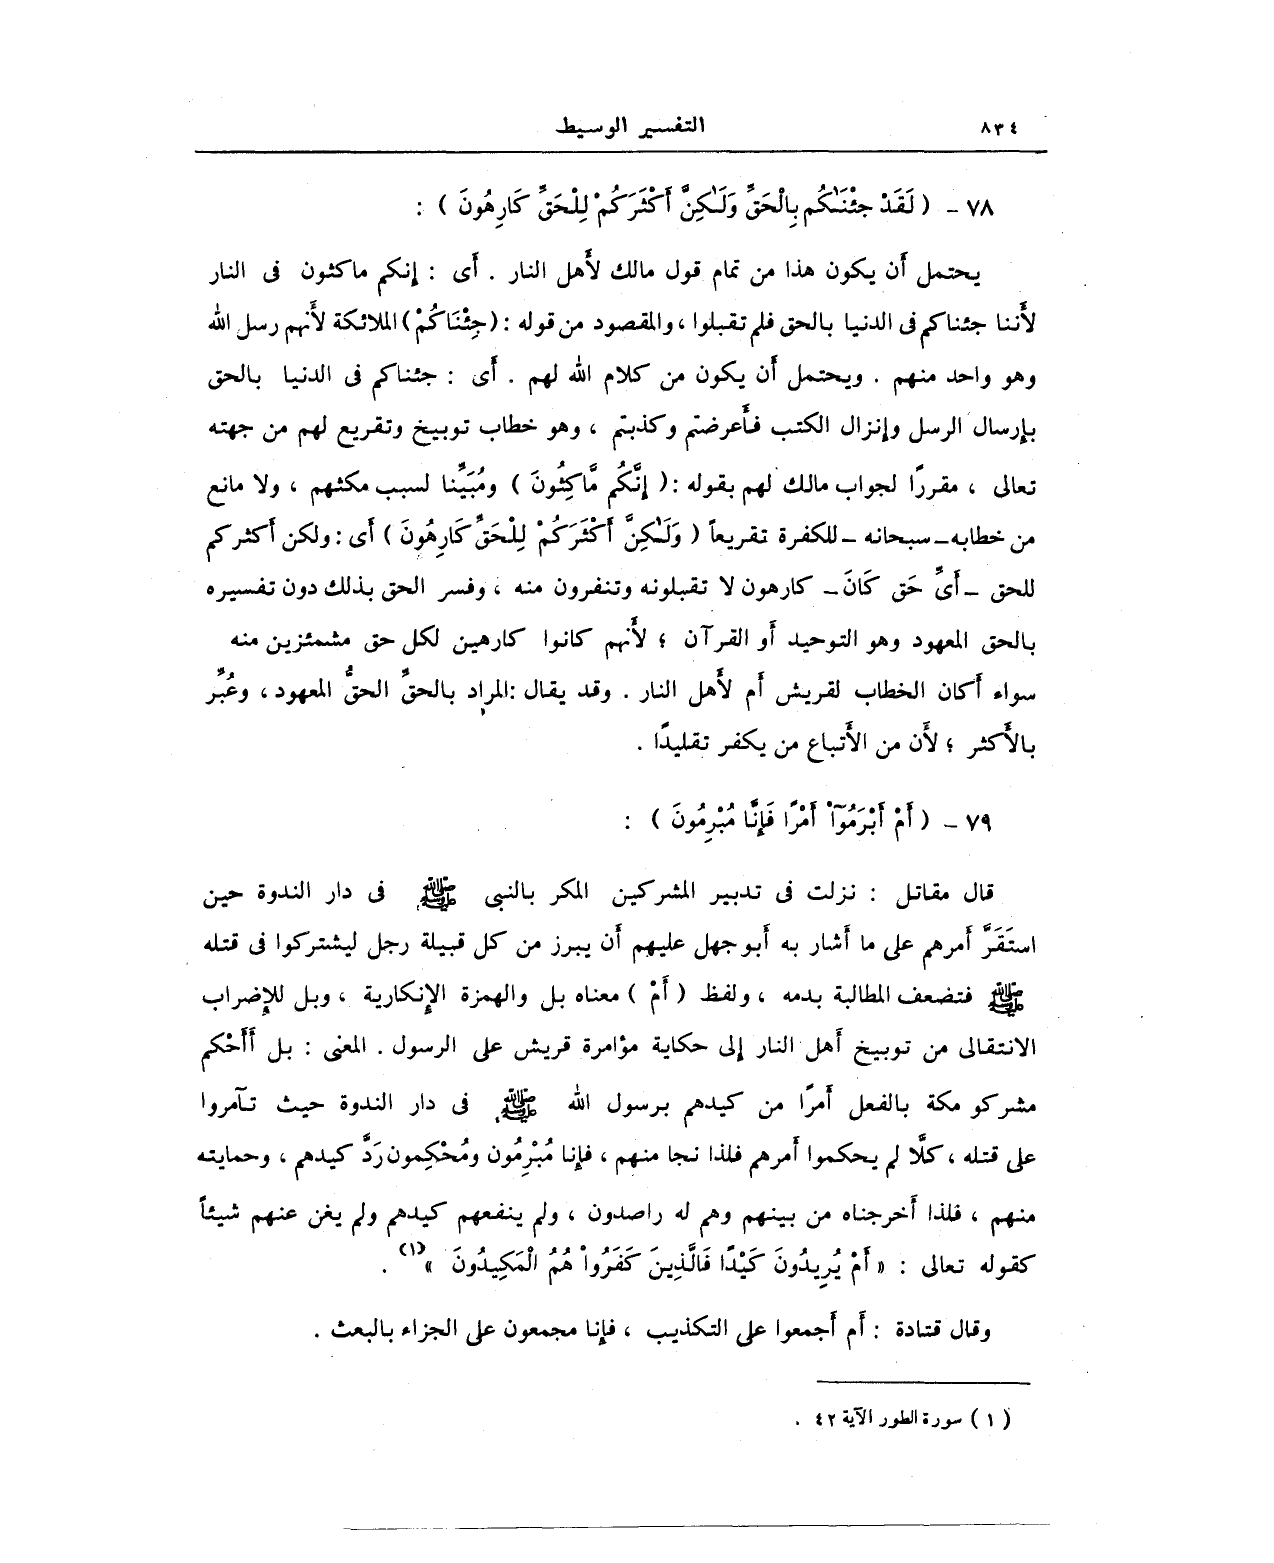 ٨٣٤ التفسير الوسيط
٧٨ - ( لَقَدْ جِئْنَٰكُم بِالْحَقِّ وَلَٰكِنَّ أَكْثَرَكُمْ لِلْحَقِّ كَارِهُونَ ) :
يحتمل أن يكون هذا من تمام قول مالك لأهل النار . أى : إنكم ماكثون فى النار
لأننا جئناكم فى الدنيا بالحق فلم تقبلوا ، والمقصود من قوله : (جِئْنَاكُمْ) الملائكة لأنهم رسل الله
وهو واحد منهم . ويحتمل أن يكون من كلام الله لهم . أى : جئناكم فى الدنيا بالحق
بإرسال الرسل وإنزال الكتب فأعرضتم وكذبتم ، وهو خطاب توبيخ وتقريع لهم من جهته
تعالى ، مقررًا لجواب مالك لهم بقوله : ( إِنَّكُم مَّاكِثُونَ ) ومُبَيِّنا لسبب مكثهم ، ولا مانع
من خطابه - سبحانه - للكفرة تقريعاً ( وَلَٰكِنَّ أَكْثَرَكُمْ لِلْحَقِّ كَارِهُونَ ) أى : ولكن أكثركم
للحق - أَىِّ حَق كَانَ - كارهون لا تقبلونه وتنفرون منه ، وفسر الحق بذلك دون تفسيره
بالحق المعهود وهو التوحيد أو القرآن ؛ لأنهم كانوا كارهين لكل حق مشمئزين منه
سواء أكان الخطاب لقريش أم لأهل النار . وقد يقال : المراد بالحقِّ الحقُّ المعهود ، وعُبِّر
بالأكثر ؛ لأن من الأتباع من يكفر تقليدًا .
٧٩ - ( أَمْ أَبْرَمُوٓاْ أَمْرًا فَإِنَّا مُبْرِمُونَ ) :
قال مقاتل : نزلت فى تدبير المشركين المكر بالنبى ﷺ فى دار الندوة حين
استَقَرَّ أمرهم على ما أشار به أبو جهل عليهم أن يبرز من كل قبيلة رجل ليشتركوا فى قتله
ﷺ فتضعف المطالبة بدمه ، ولفظ ( أَمْ ) معناه بل والهمزة الإنكارية ، وبل للإضراب
الانتقالى من توبيخ أهل النار إلى حكاية مؤامرة قريش على الرسول . المعنى : بل أَأَحْكم
مشركو مكة بالفعل أمرًا من كيدهم برسول الله ﷺ فى دار الندوة حيث تآمروا
على قتله ، كلَّا لم يحكموا أمرهم فلذا نجا منهم ، فإنا مُبْرِمُون ومُحْكِمون رَدَّ كيدهم ، وحمايته
منهم ، فلذا أخرجناه من بينهم وهم له راصدون ، ولم ينفعهم كيدهم ولم يغن عنهم شيئاً
كقوله تعالى : « أَمْ يُرِيدُونَ كَيْدًا فَالَّذِينَ كَفَرُواْ هُمُ الْمَكِيدُونَ »(١) .
وقال قتادة : أم أجمعوا على التكذيب ، فإنا مجمعون على الجزاء بالبعث .
( ١ ) سورة الطور الآية ٤٢ .